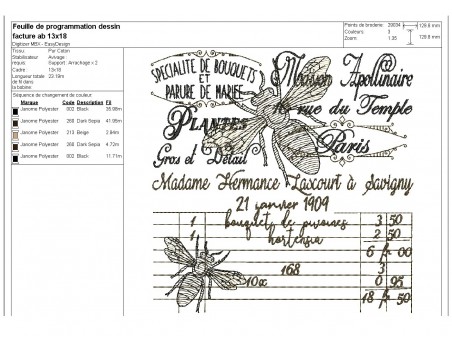 Feuille de programmation dessin
facture ab 13x18
Digitizer MBX - EasyDesign
Points de broderie: 29694
Couleurs: 3
Zoom: 1.35
128.8 mm
128.8 mm
Tissu : Pur Coton
Stabilisateur : Avivage :
Requis : Support: Arrachage x 2
Cadre : 13x18
Longueur totale 23.19m
de fil dans
la bobine:
Séquence de changement de couleur:
Marque Code Description Fil
Janome Polyester 002 Black 36.98m
Janome Polyester 268 Dark Sepia 41.99m
Janome Polyester 213 Beige 2.94m
Janome Polyester 268 Dark Sepia 4.72m
Janome Polyester 002 Black 11.71m
SPECIALITE DE BOUQUETS
ET
PARURE DE MARIEE
Maison Apollinaire
rue du Temple
PLANTES
Paris
Gros et Détail
Madame Hermance Laxcourt à Savigny
21 janvier 1909
1 bouquets de pivoines 3 50
1 hortensia 2 50
6 00
168 3
10x 0 95
18 50